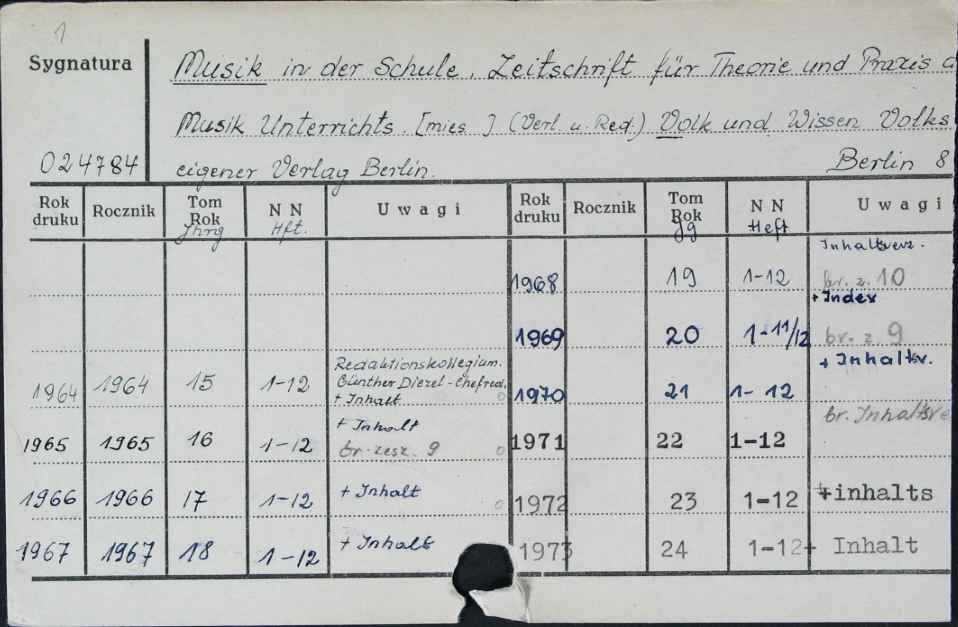 1
Sygnatura
Musik in der Schule. Zeitschrift für Theorie und Praxis d
Musik Unterrichts. [mies.] (Verl. u. Red.) Volk und Wissen Volks
024784 eigener Verlag Berlin. Berlin 8
Rok druku Rocznik Tom Rok Jhrg N N Hft. Uwagi Rok druku Rocznik Tom Rok Jg N N Heft Uwagi
Inhaltsverz.
1968 19 1-12 br. z. 10
+ Index
1969 20 1-11/12 br. z. 9
+ Inhaltsv.
Redaktionskollegium.
Günther Diezel - Chefred.
1964 1964 15 1-12 + Inhalt 1970 21 1-12
br. Inhaltsve
+ Inhalt
1965 1965 16 1-12 br. zesz. 9 1971 22 1-12
1966 1966 17 1-12 + Inhalt 1972 23 1-12 +inhalts
1967 1967 18 1-12 + Inhalt 1973 24 1-12+ Inhalt